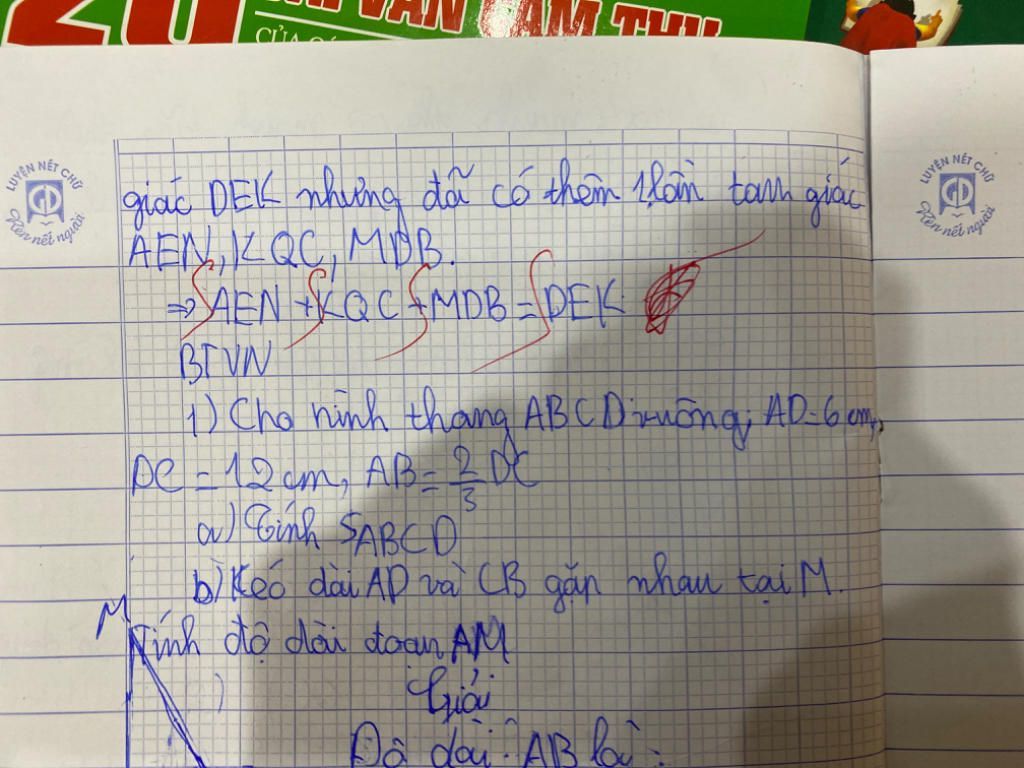 VĂN TÂM THƯ
LUYỆN NÉT CHỮ
Rèn nết người
LUYỆN NÉT CHỮ
Rèn nết người
giác DEK nhưng đã có thêm 1 lần tam giác
AEN, KQC, MDB.
=> SAEN + SKQC + SMDB = SDEK
BTVN
1) Cho hình thang ABCD vuông, AD = 6 cm,
DC = 12 cm, AB = 2/3 DC
a) Tính SABCD
b) Kéo dài AD và CB gặp nhau tại M.
M
Tính độ dài đoạn AM
Giải
Độ dài AB là: